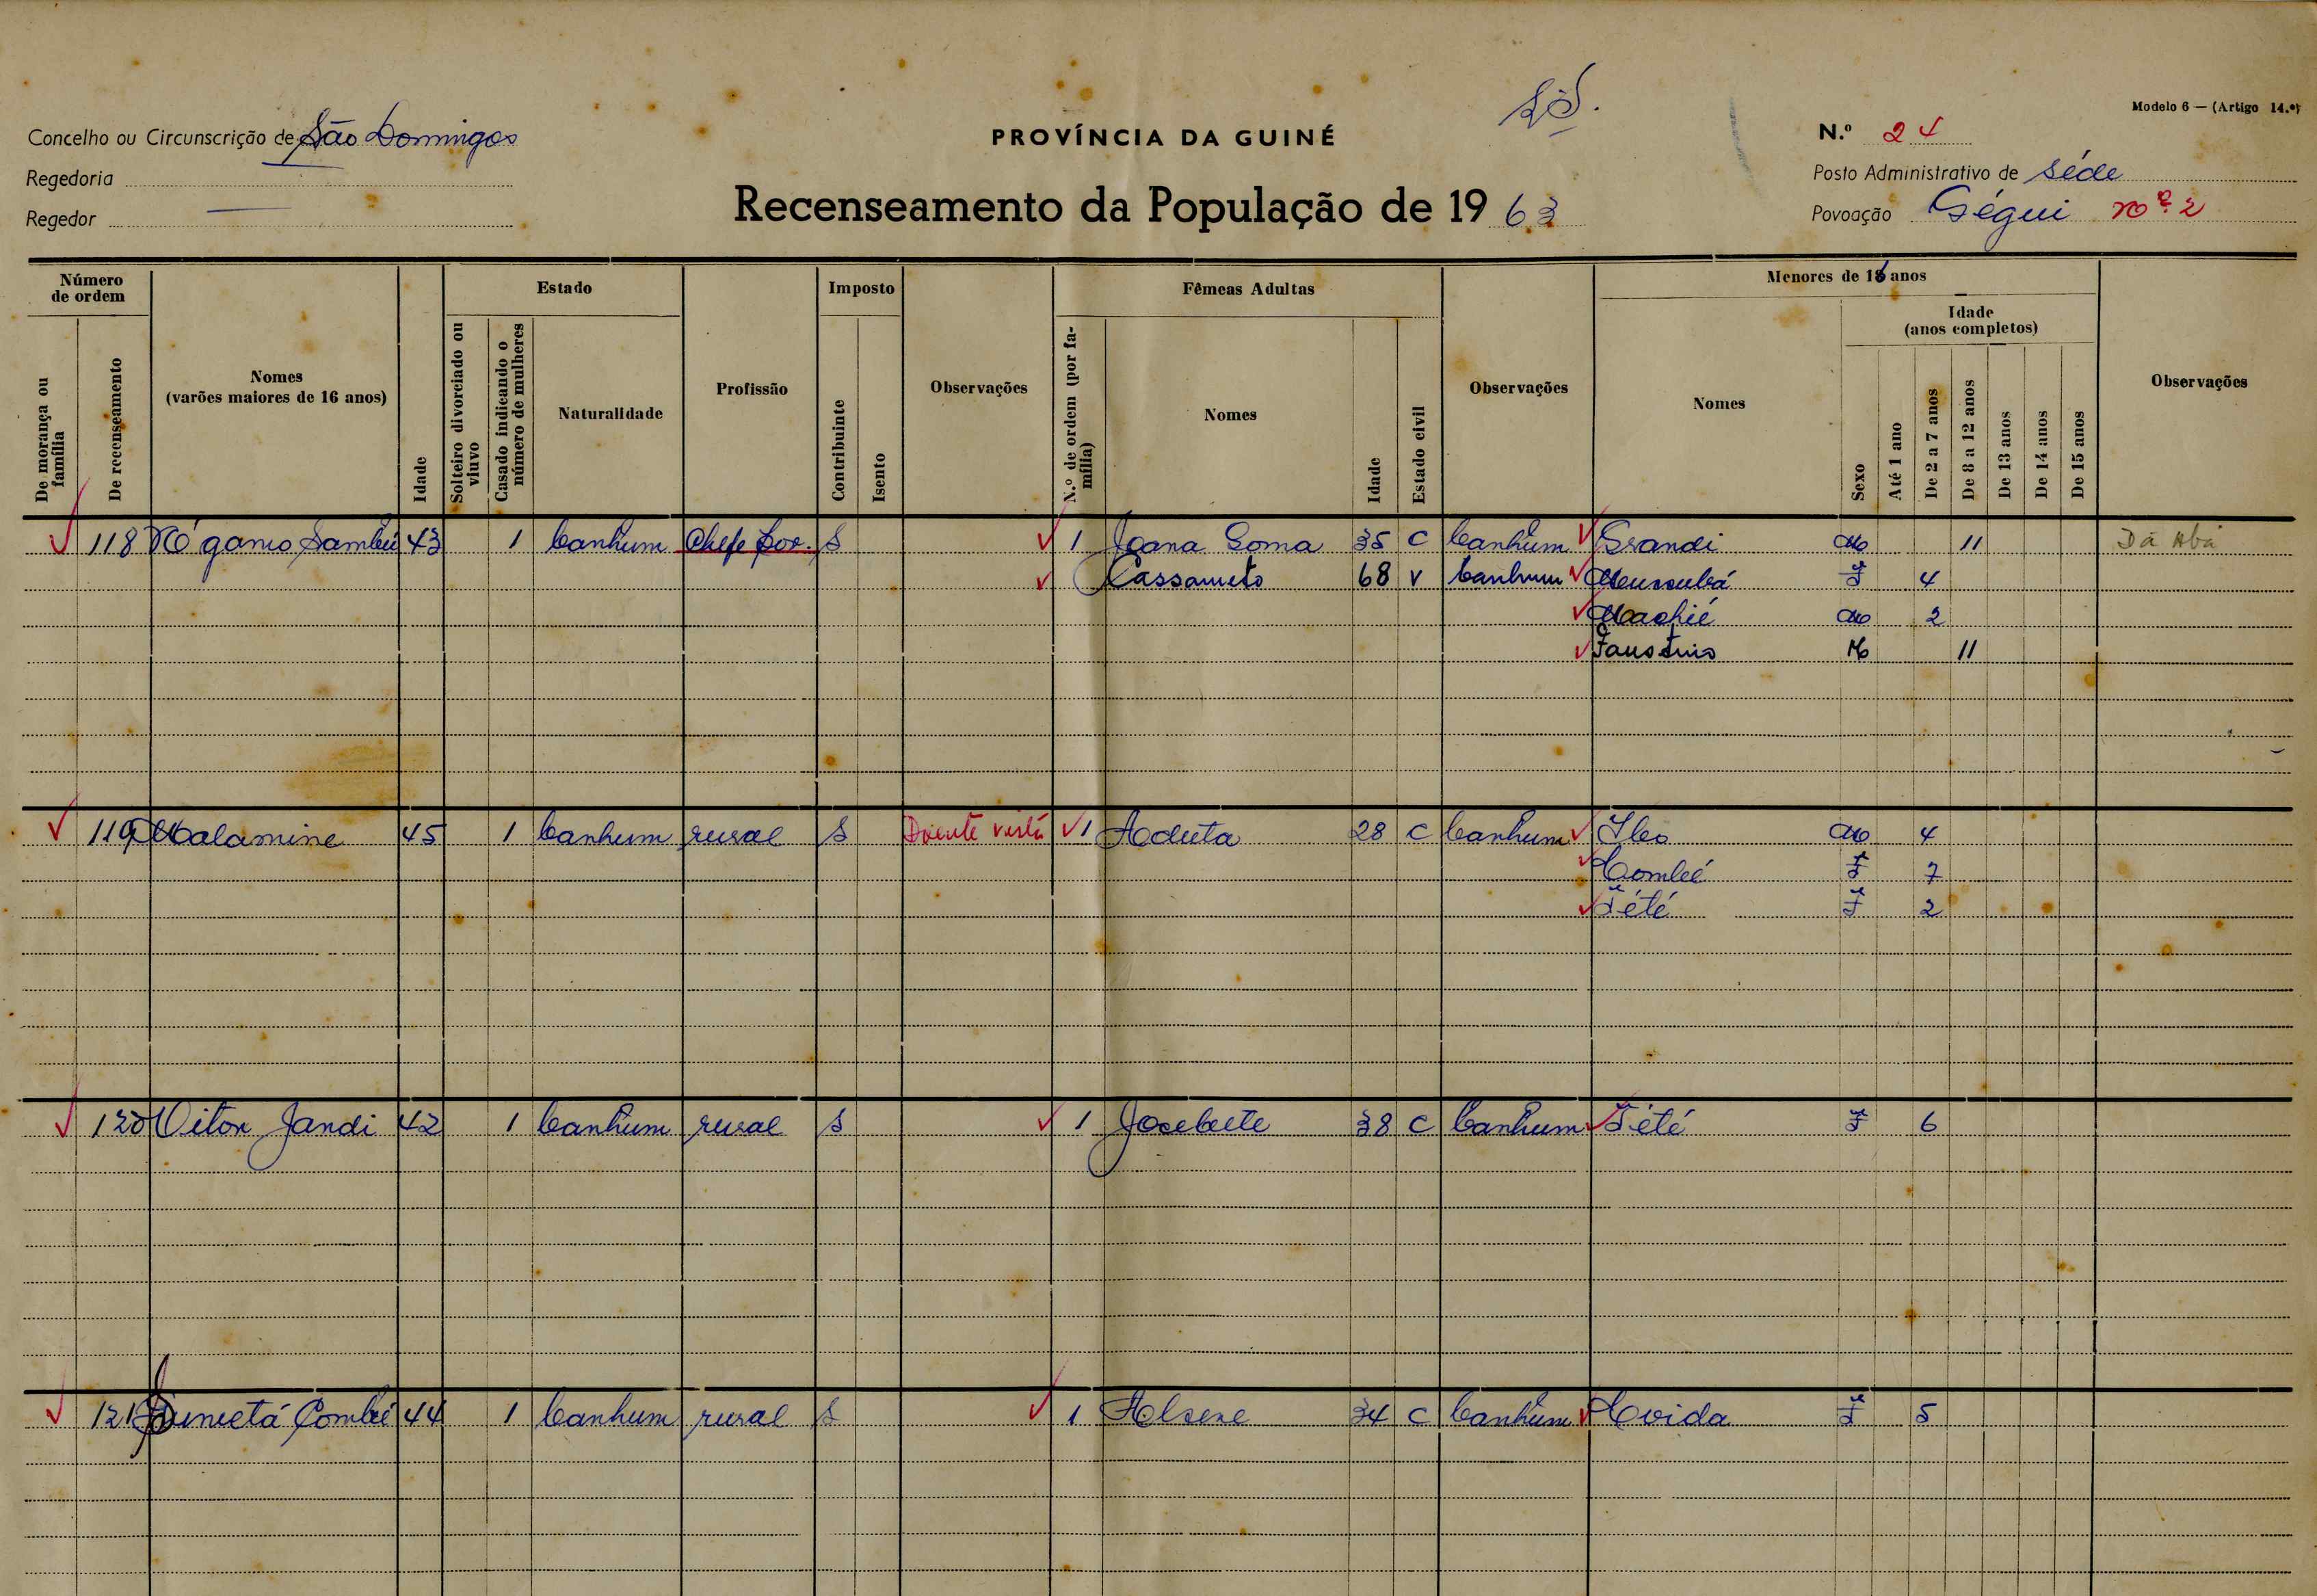 Modelo 6 — (Artigo 14.º)
Concelho ou Circunscrição de São Domingos
PROVÍNCIA DA GUINÉ
N.º 24
Regedoria
Posto Administrativo de Séde
Regedor
Recenseamento da População de 1963
Povoação Ségui nº 2
Número de ordem
De morança ou família
De recenseamento
Nomes
(varões maiores de 16 anos)
Idade
Estado
Solteiro divorciado ou viuvo
Casado indicando o número de mulheres
Naturalidade
Profissão
Imposto
Contribuinte
Isento
Observações
Fêmeas Adultas
N.º de ordem (por família)
Nomes
Idade
Estado civil
Observações
Menores de 16 anos
Nomes
Sexo
Idade
(anos completos)
Até 1 ano
De 2 a 7 anos
De 8 a 12 anos
De 13 anos
De 14 anos
De 15 anos
Observações
118 43 1 Canhum Chefe Pov. S 1 Joana Goma 35 C Canhum Grandi M 11
Cassameto 68 V Canhum F 4
M 2
Faustino M 11
119 Malamine 45 1 Canhum rural S Doente 1 Aduta 28 C Canhum M 4
Combé F 7
Tété F 2
120 Vitor Jandi 42 1 Canhum rural S 1 38 C Canhum Tété F 6
121 44 1 Canhum rural S 1 34 C Canhum F 5